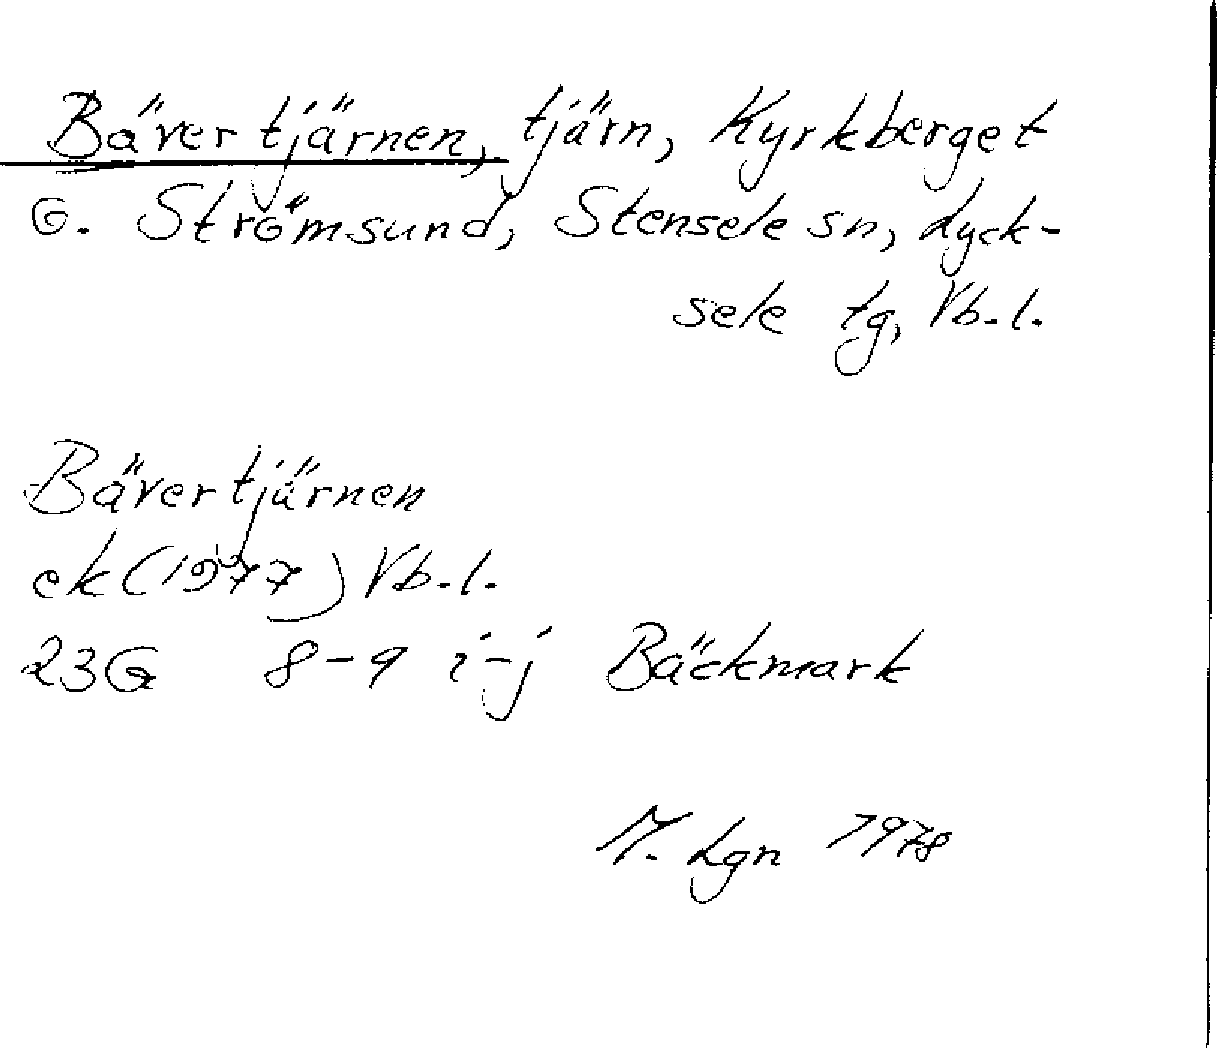 Bävertjärnen, tjärn, Kyrkberget
o. Strömsund, Stensele sn, Lyck-
sele tg, Vb.l.
Bävertjärnen
ek (1977) Vb.l.
23G 8-9 i-j Bäckmark
M. Lgn 1978